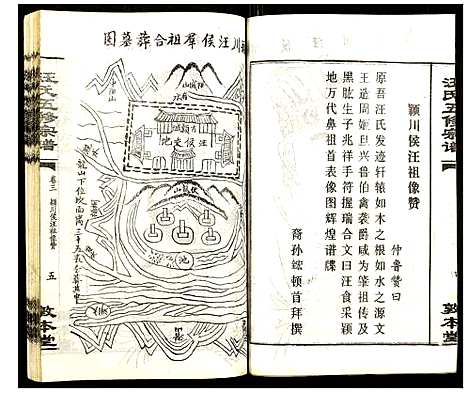 汪氏五修宗谱
敦本堂
颍川侯汪祖像赞
仲鲁赞曰
原吾汪氏发迹轩辕如木之根如水之源文
王造周姬旦兴鲁伯禽袭爵咸为肇祖传及
黑肱生子兆祥手符握瑞合文曰汪食采颖
地万代鼻祖首表像图辉煌谱牒
裔孙 顿首拜撰
川汪侯群祖合葬墓图
古颖城
汪侯交地
伏龙山
池
龙山下位坎面离三十五氏
汪氏五修宗谱
卷三
颍川侯汪祖像赞
五
敦本堂